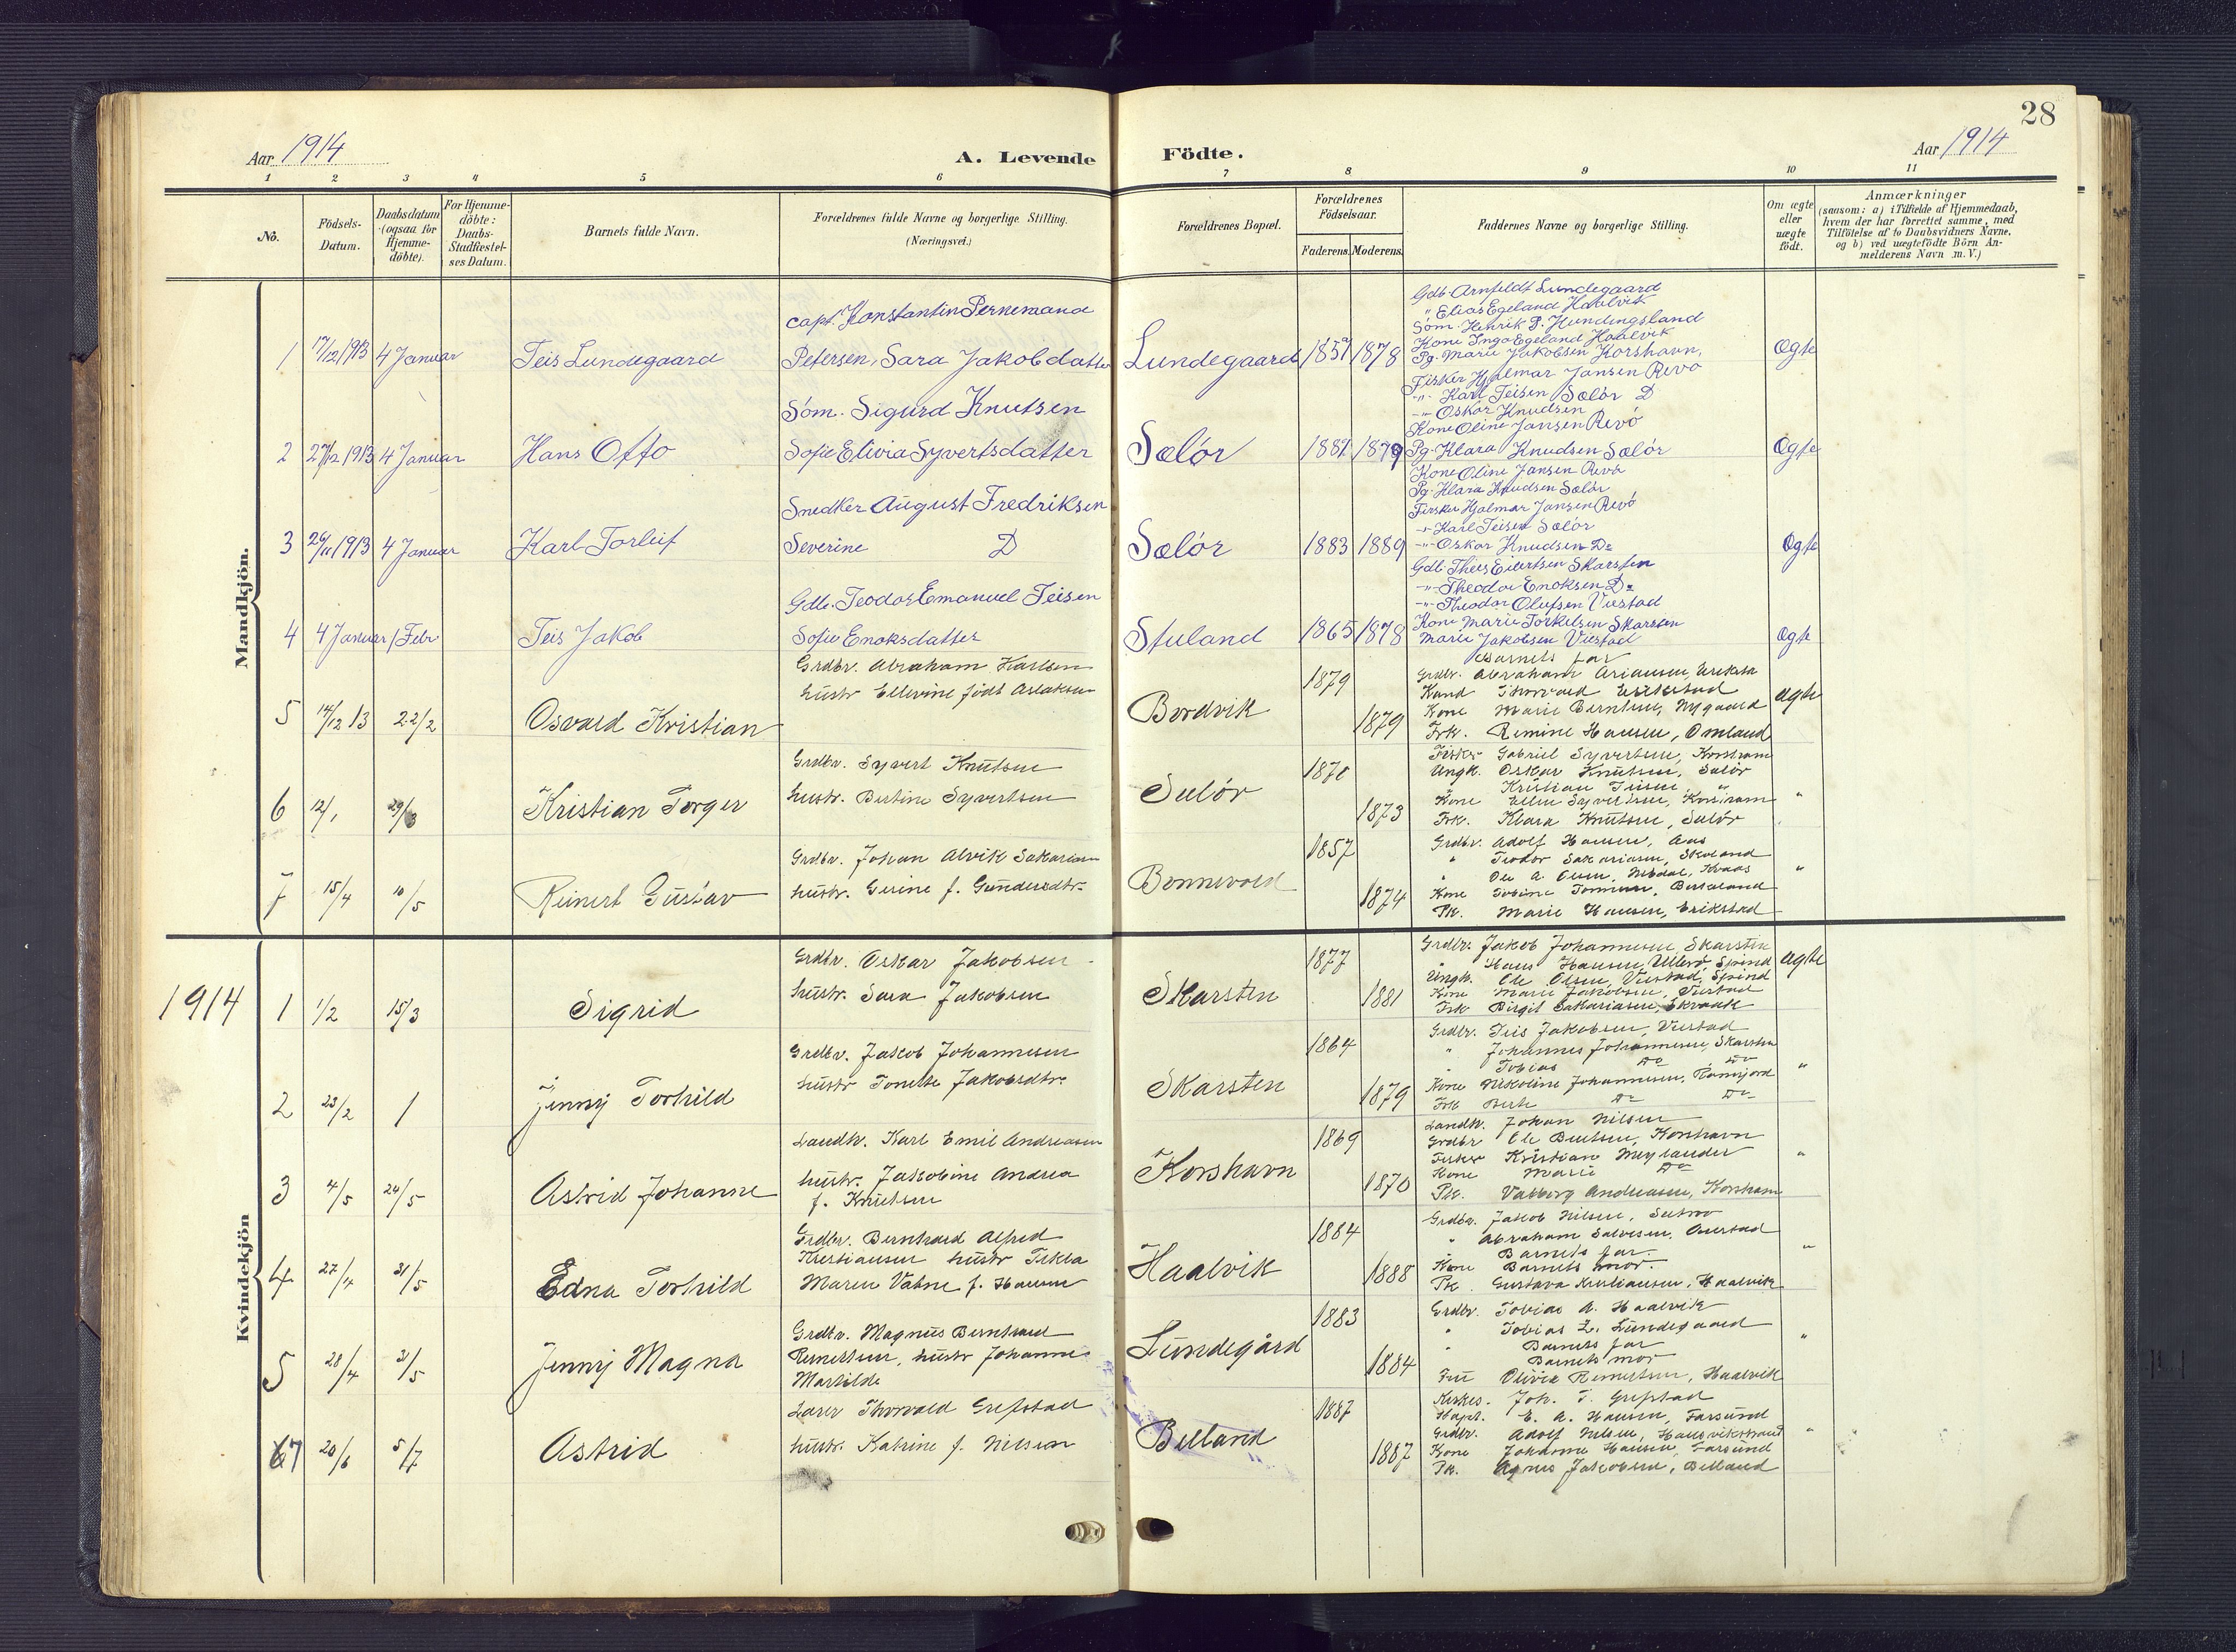 28
Aar 1914
A. Levende Födte.
Aar 1914
1 2 3 4 5 6 7 8 9 10 11
No.
Födsels-
Datum.
Daabsdatum
(ogsaa for
Hjemme-
döbte).
For Hjemme-
döbte:
Daabs-
Stadfæstel-
ses Datum.
Barnets fulde Navn.
Forældrenes fulde Navne og borgerlige Stilling.
(Næringsvei.)
Forældrenes Bopæl.
Forældrenes
Födselsaar.
Faderens. Moderens.
Faddernes Navne og borgerlige Stilling.
Om ægte
eller
uægte
födt.
Anmærkninger
(saasom: a) i Tilfælde af Hjemmedaab,
hvem der har forrettet samme, med
Tilföielse af to Daabsvidners Navne.
og b) ved uægtefödte Börn An-
melderens Navn m. V.)
Mandkjön.
1 17/12 1913 4 Januar Teis Lundegaard
capt. Konstantin
Petersen, Sara Jakobdatter
Lundegaard 1857 1878
Gdb. Arnfeldt Lundegaard
" Elias Egeland Haalvik
Söm. Henrik P. Hundingsland
Kone Inga Egeland Haalvik
Pg. Marie Jakobsen Korshavn,
Ægte
2 27/12 1913 4 Januar Hans Otto
Söm. Sigurd Knutsen
Sofie Elivia Syvertsdatter
Sælör 1881 1879
Fisker Hjalmar Jansen Revö
-"- Karl Teisen Sælör D
-"- Oskar Knudsen
Kone Oline Jansen Revö
Pg. Klara Knudsen Sælör
Ægte
3 29/11 1913 4 Januar Karl Torleif
Snedker August Fredriksen
Severine D
Sælör 1883 1889
Kone Oline Jansen Revö
Pg. Klara Knudsen Sælör
Fisker Hjalmar Jansen Revö
-"- Karl Teisen Sælör
-"- Oskar Knudsen Do
Ægte
4 4 Januar 1 Febr Teis Jakob
Gdb. Teodor Emanuel Teisen
Sofie Enoksdatter
Stuland 1865 1878
Gdb. Theis Eilertsen Skarsten
-"- Theodor Enoksen Do
-"- Theodor Olufsen Viestad
Kone Marie Torkelsen Skarsten
Marie Jakobsen Viestad
Ægte
5 14/12 13 22/2 Osvald Kristian
Grdbr. Abraham Karlsen
hustr Ellevine födt Aslaksen
Bordvik 1879 1879
Barnets far
Grdbr. Abraham Ariansen, Eriksta
Kand Thorvald Erikstad
Kone Marie Berntsen, Nygaard
Frk. Remine Hansen, Omland
ægte
6 12/1 29/3 Kristian Torger
Grdbr. Syvert Knutsen
hustr. Bertine Syvertsen
Selör 1870 1873
Fisker Gabriel Syvertsen, Korshavn
Ungk. Oskar Knutsen, Selör
" Kristian Teisen "
Kone Ellen Syvertsen, Korshavn
Frk. Klara Knutsen, Selör
"
7 15/4 10/5 Reinert Gustav
Grdbr. Johan Alvik Sakariasen
hustr. Gerine f. Gundersdtr.
Bennevold 1857 1874
Grdbr. Adolf Hansen, Aas
" Teodor Sakariasen, Skoland
" Ole A. Olsen, Medal, Kvaas
Kone Tobine Tønnesen, Bertaland
Pk. Marie Hansen, Erikstad
"
Kvindekjön
1914
1 1/2 15/3 Sigrid
Grdbr. Oskar Jakobsen
hustr. Sara Jakobsen
Skarsten 1877 1881
Grdbr. Jakob Johannesen, Skarsten
" Hans Hansen, Ullerö, Spind
Ungk. Ole Olsen, Viestad, Spind
Kone Marie Jakobsen, Viestad
Frk Birgit Sakariasen,
ægte
2 23/2 1 Jenny Torhild
Grdbr. Jakob Johannesen
hustr Tonette Jakobsdtr.
Skarsten 1864 1879
Grdbr. Teis Jakobsen, Viestad
" Johannes Johannesen, Skarsten
" Tobias Do Do
Kone Nikoline Johannesen,
Frk Berte Do Do
"
3 4/5 24/5 Astrid Johanne
Landh. Karl Emil Andreasen
hustr. Jakobine Andrea
f. Knutsen
Korshavn 1869 1870
Landh. Johan Nilsen
Grdbr Ole Berntsen, Korshavn
Fisker Kristian Meylander
Kone Marie Do
Pk. Valborg Andreasen, Korshavn
"
4 27/4 31/5 Edna Torhild
Grdbr. Bernhard Alfred
Kristiansen hustr Tekla
Maren Vatne f. Hansen
Haalvik 1884 1888
Grdbr. Jakob Nilsen,
" Abraham Salvesen,
" Barnets far.
Kone Barnets mor.
Pk. Gustava Kristiansen, Haalvik
"
5 28/4 31/5 Jenny Magna
Grdbr. Magnus Bernhard
Reinertsen, hustr Johanne
Martilde
Lundegård 1883 1884
Grdbr. Tobias A. Haalvik
" Tobias Z. Lundegaard
" Barnets far
Barnets mor
Fru Olivia Reinertsen, Haalvik
"
67 20/6 5/7 Astrid
Lærer Thorvald Grefstad
hustr. Katrine f. Nilsen
Belland 1887 1887
Kirkes. Joh. T. Grefstad
Kapt. E. A. Hansen, Farsund
Grdbr. Adolf Nilsen,
Kone Johanne Hansen, Farsund
Pk. Agnes Jakobsen, Belland
"